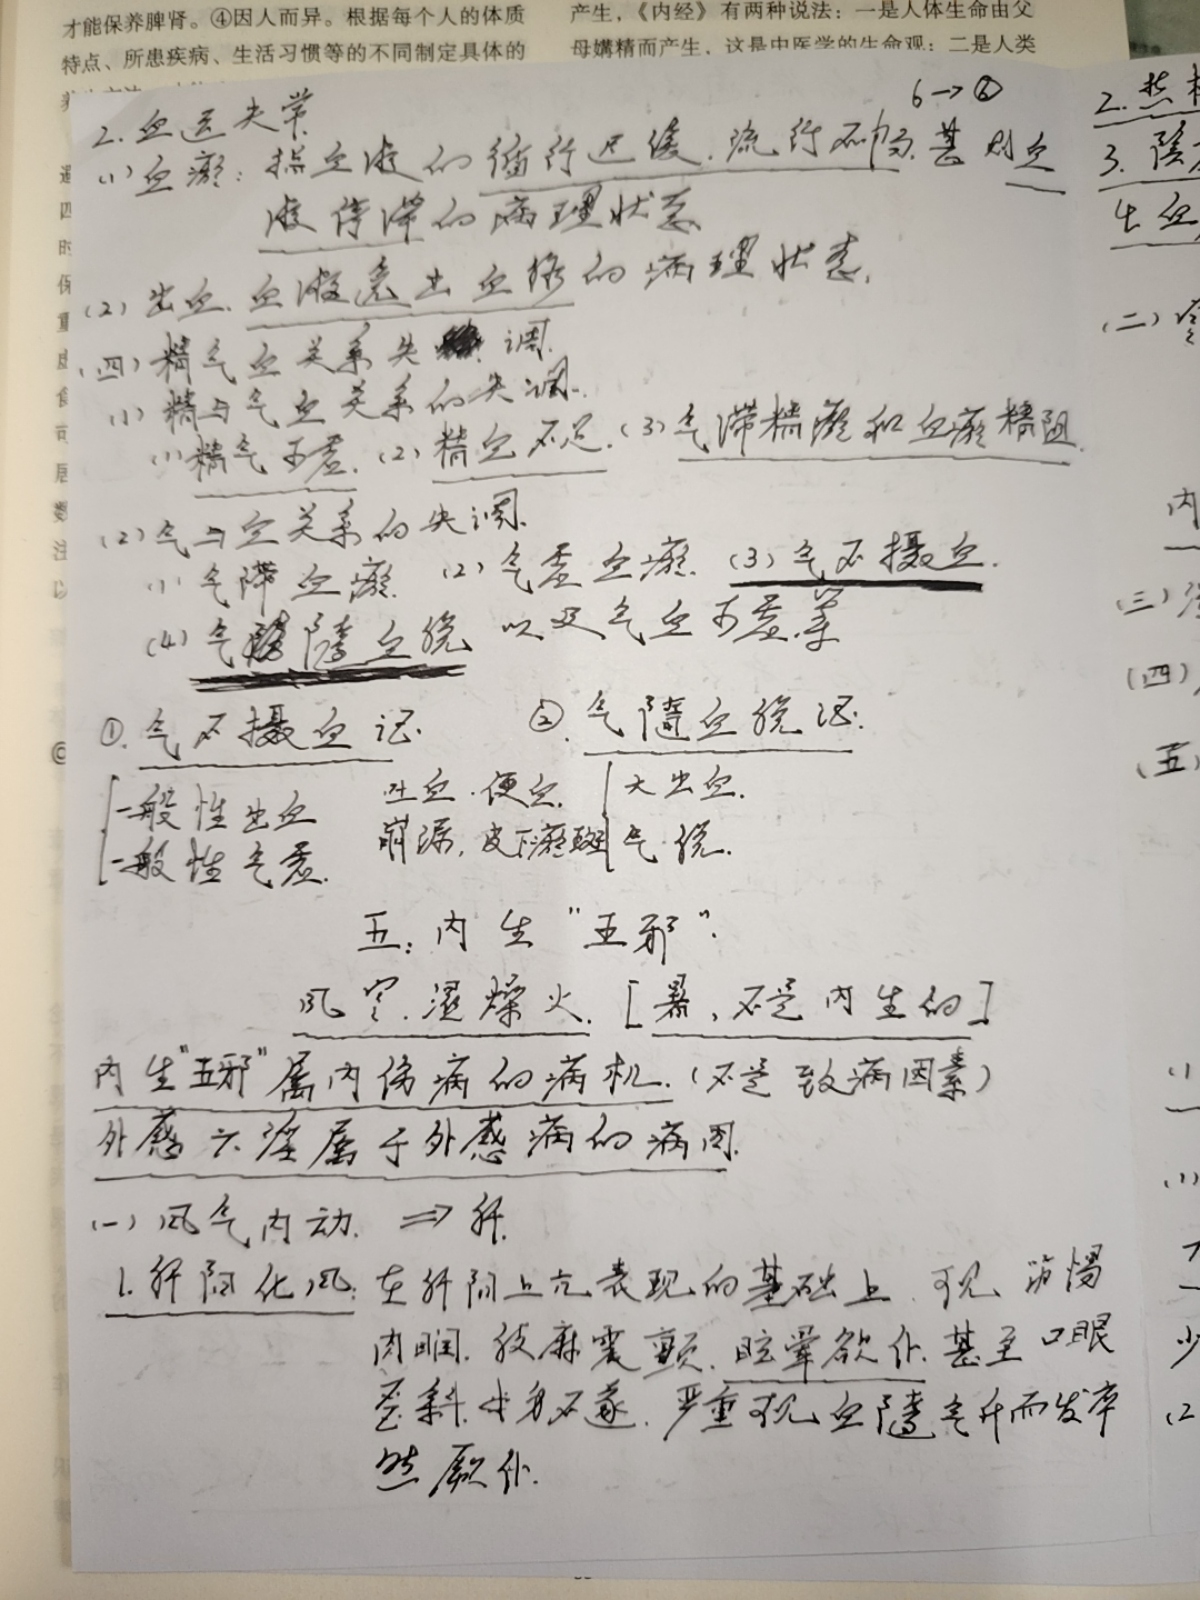 才能保养脾肾。④因人而异。根据每个人的体质
特点、所患疾病、生活习惯等的不同制定具体的
产生,《内经》有两种说法:一是人体生命由父
母媾精而产生,这是中医学的生命观;二是人类
6→⑥
2.血运失常
(1)血瘀:指血液的循行迟缓.流行不畅.甚则血
液停滞的病理状态
(2)出血.血液逸出血络的病理状态.
(四)精气血关系失 调.
(1)精与气血关系的失调.
(1)精气不虚.(2)精血不足.(3)气滞精瘀和血瘀精阻.
(2)气与血关系的失调.
(1)气滞血瘀.(2)气虚血瘀.(3)气不摄血.
(4)气随血脱 以及气血不虚等
①.气不摄血证. ②.气随血脱证.
一般性出血 吐血.便血. 大出血.
一般性气虚. 崩漏,皮下瘀斑 气脱.
五:内生“五邪”.
风寒.湿燥火.[暑,不是内生的]
内生“五邪”属内伤病的病机.(不是致病因素)
外感六淫属于外感病的病因.
(一)风气内动.⇒肝.
1.肝阳化风:在肝阳上亢表现的基础上.可见筋惕
肉瞤.肢麻震颤.眩晕欲仆.甚至口眼
歪斜.半身不遂.严重可见血随气升而发卒
然厥仆.
2.热
3.
生血
(二)
内
(三)
(四)
(五)